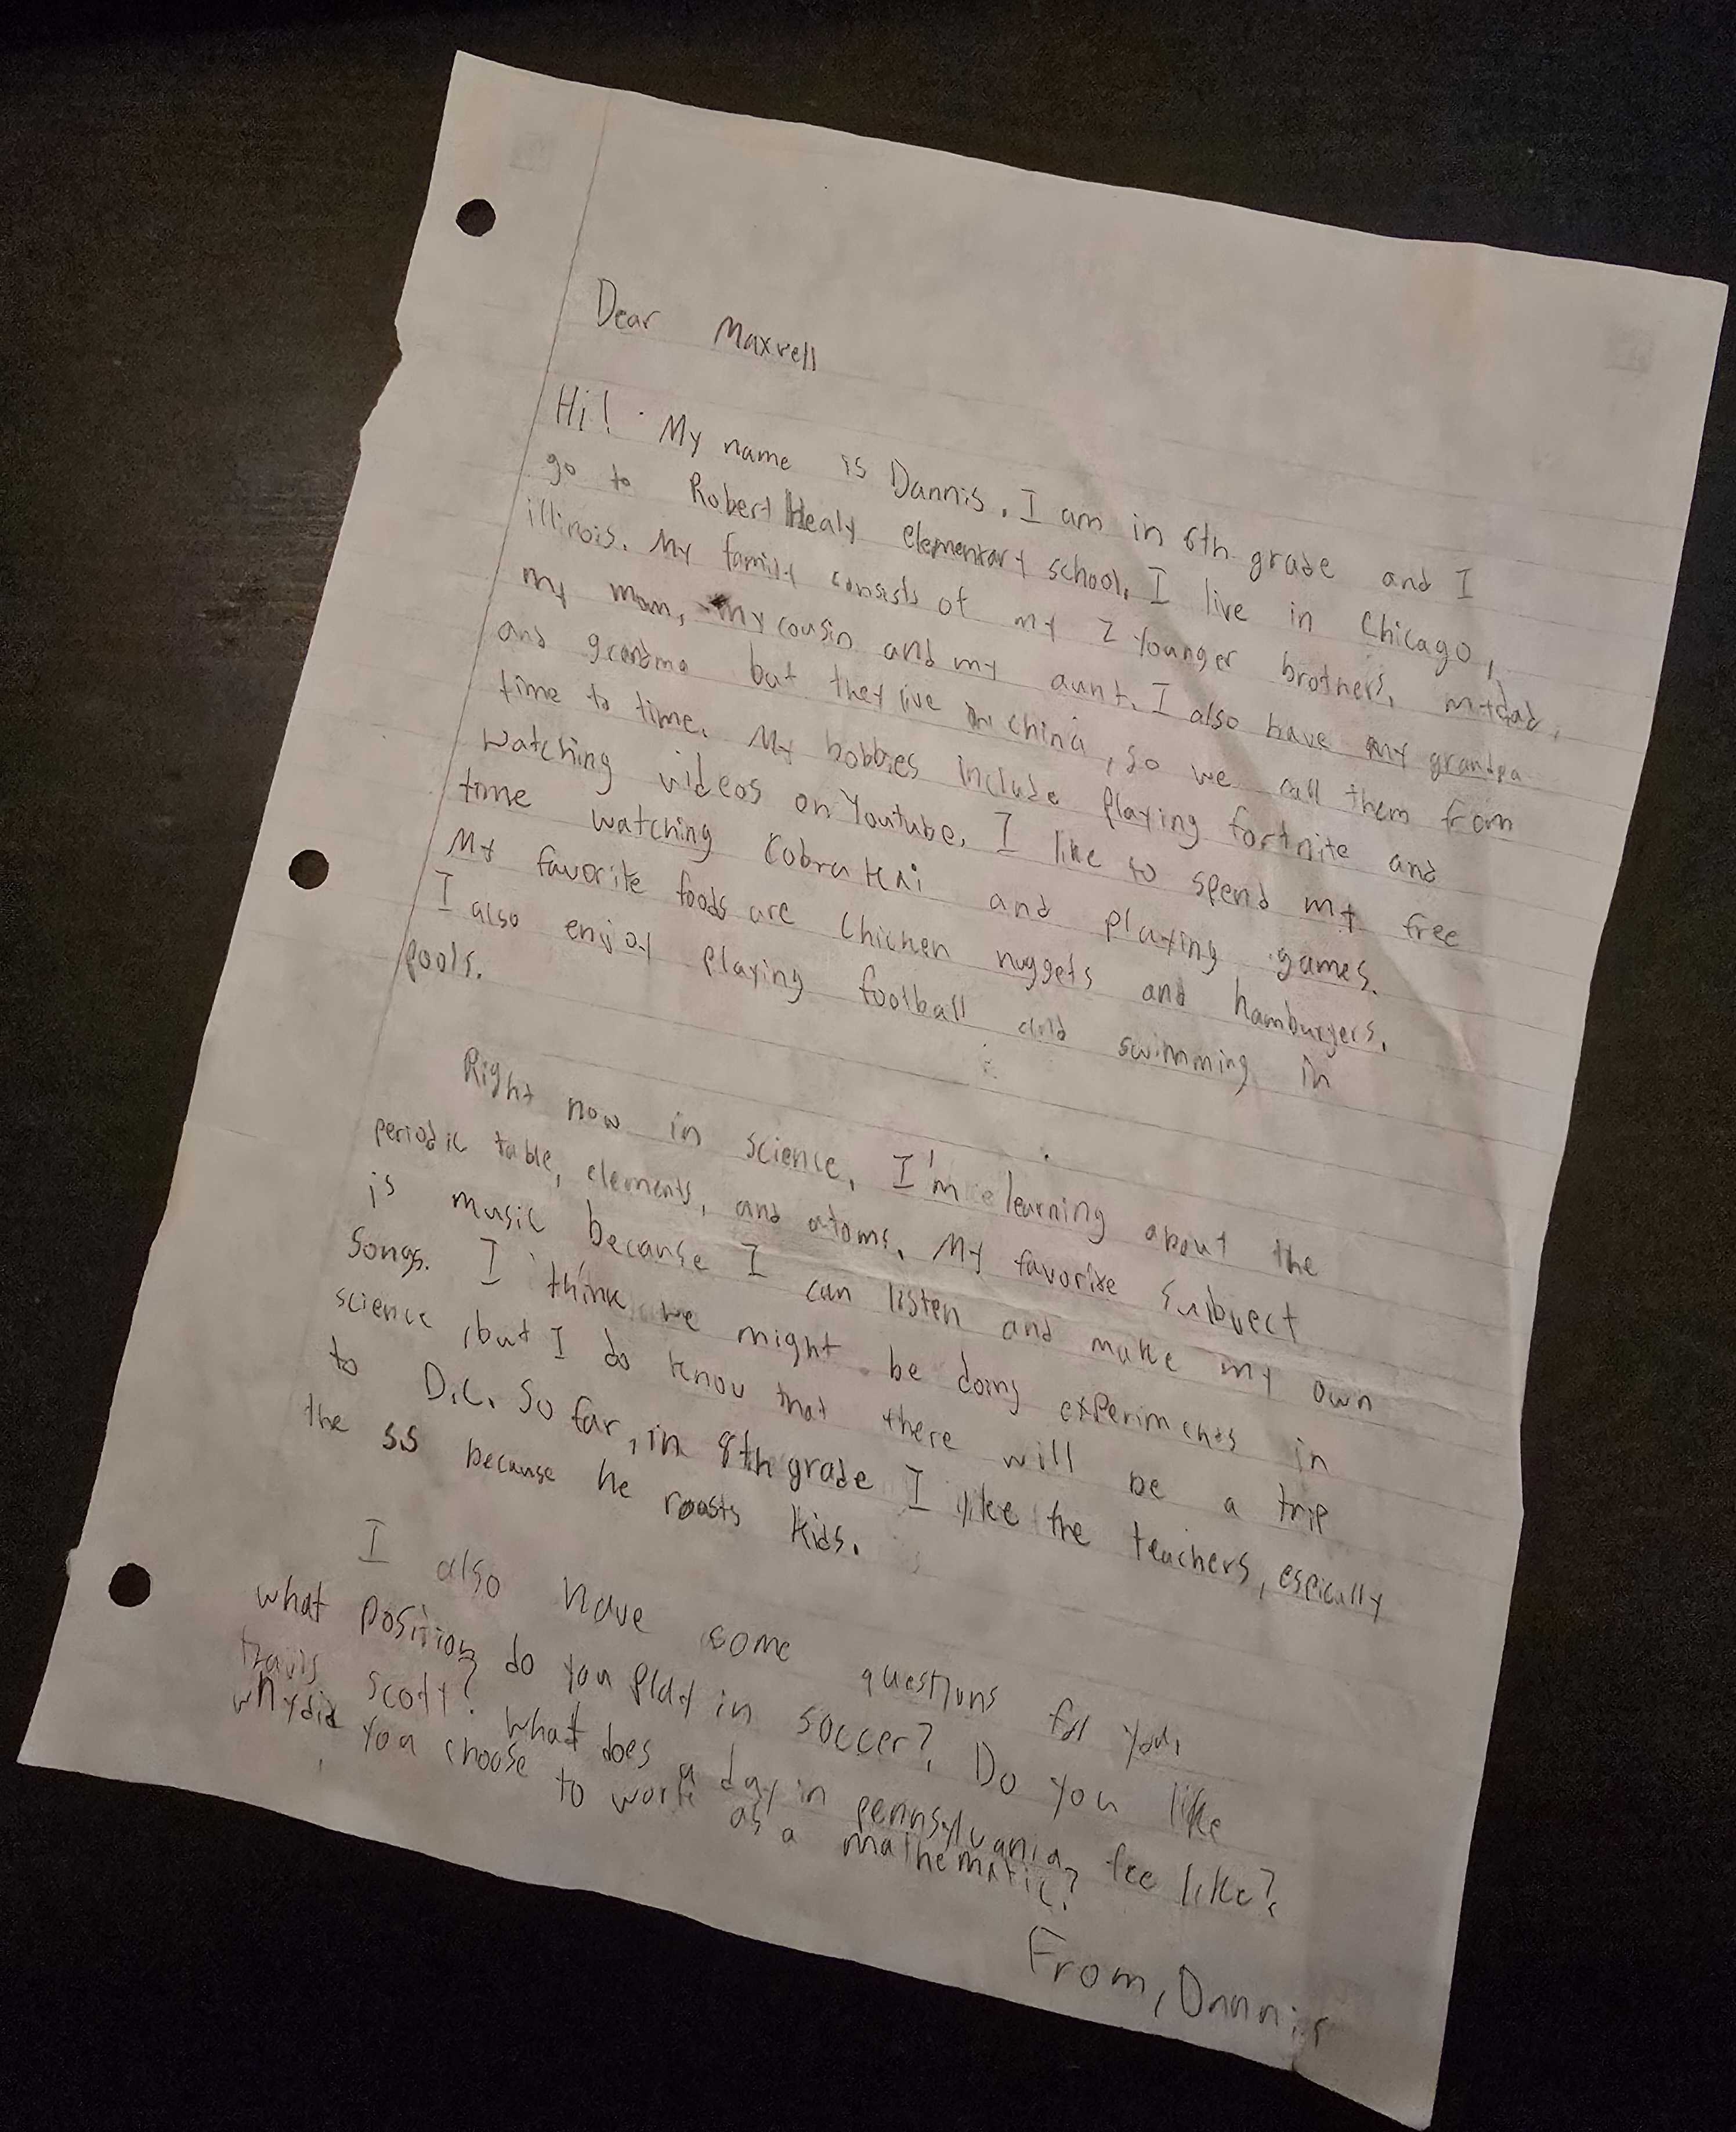 Dear Maxwell
Hi! My name is Dannis. I am in 6th grade and I
go to Robert Healy elementary school. I live in Chicago,
illinois. My family consists of my 2 younger brothers, my dad,
my mom, my cousin and my aunt. I also have my grandpa
and grandma but they live in china, so we call them from
time to time. My hobbies include playing fortnite and
watching videos on Youtube. I like to spend my free
time watching Cobra Kai and playing games.
My favorite foods are Chicken nuggets and hamburgers.
I also enjoy playing football and swimming in
pools.
Right now in science, I'm learning about the
periodic table, elements, and atoms. My favorite subject
is music because I can listen and make my own
songs. I think we might be doing experiments in
science, but I do know that there will be a trip
to D.C. So far, in 8th grade I like the teachers, espically
the SS because he roasts kids.
I also have some questions for you.
what position do you play in soccer? Do you like
travis scott? What does a day in pennsylvania fee like?
why did you choose to work as a mathematic?
From, Dannis